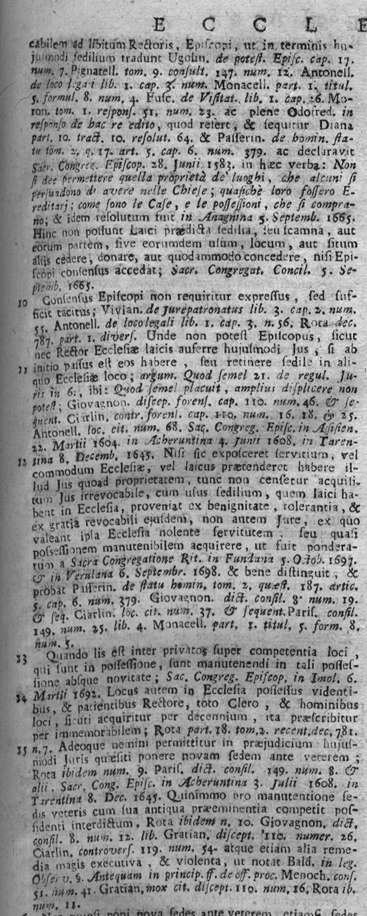 E C C L E
cabilem ad libitum Rectoris, Episcopi, ut in terminis hu-
jusmodi sedilium tradunt Ugolin. de potest. Episc. cap. 17.
num. 7. Pignatell. tom. 9. consult. 147. num. 12. Antonell.
de loco legali lib. 1. cap. 3. num. Monacell. part. 1. titul.
5. formul. 8. num. 4. Fusc. de Visitat. lib. 1. cap. 26. Mo-
ron. tom. 1. respons. 51. num. 23. ac plene Odofred. in
responso de hac re edito, quod refert, & sequitur Diana
part. 10. tract. 10. resolut. 64. & Passerin. de homin. sta-
tu tom. 2. q. 17. art. 5. cap. 6. num. 379. ac declaravit
Sacr. Congreg. Episcop. 28. Junii 1583. in hæc verba: Non
si dee permettere quella proprietà de' luoghi, che alcuni si
persuadono di avere nelle Chiese; quasichè loro fossero E-
reditarj; come sono le Case, e le possessioni, che si compra-
no; & idem resolutum fuit in Anagnina 5. Septemb. 1665.
Hinc non possunt Laici prædicta sedilia, seu scamna, aut
eorum partem, sive eorumdem usum, locum, aut situm
aliis cedere, donare, aut quodammodo concedere, nisi Epi-
scopi consensus accedat; Sacr. Congregat. Concil. 5. Se-
ptemb. 1665.
10 Consensus Episcopi non requiritur expressus, sed suf-
ficit tacitus; Vivian. de Jurepatronatus lib. 3. cap. 2. num.
55. Antonell. de locolegali lib. 1. cap. 3. n. 56. Rota dec.
787. part. 1. divers. Unde non potest Episcopus, sicut
nec Rector Ecclesiæ laicis auferre hujusmodi Jus, si ab
11 initio passus est eos habere, seu retinere sedile in ali-
quo Ecclesiæ loco; argum. Quod semel 21. de regul. Ju-
ris in 6., ibi: Quod semel placuit, amplius displicere non
potest; Giovagnon. discep. forens. cap. 110. num. 46. & se-
quent. Ciarlin. contr. forens. cap. 110. num. 16. 18. & 25.
Antonell. loc. cit. num. 68. Sac. Congreg. Episc. in Assisien.
22. Martii 1604. in Acheruntina 4. Junii 1608. in Taren-
12 tina 8. Decemb. 1645. Nisi sic exposceret servitium, vel
commodum Ecclesiæ, vel laicus prætenderet habere il-
lud Jus quoad proprietatem, tunc non censetur acquisi-
tum Jus irrevocabile, cum usus sedilium, quem laici ha-
bent in Ecclesia, proveniat ex benignitate, tolerantia, &
ex gratia revocabili ejusdem, non autem Jure, ex quo
valeant ipsa Ecclesia nolente servitutem, seu quasi
possessionem manutenibilem acquirere, ut fuit pondera-
tum a Sacra Congregatione Rit. in Fundana 5. Octob. 1697.
& in Verulana 6. Septembr. 1698. & bene distinguit, &
probat Passerin. de statu homin. tom. 2. quæst. 187. artic.
5. cap. 6. num. 379. Giovagnon. dict. consil. 8. num. 19.
& seq. Ciarlin. loc. cit. num. 37. & sequent. Paris. consil.
149. num. 25. lib. 4. Monacell. part. 1. titul. 5. form. 8.
num. 5.
13 Quando lis est inter privatos super competentia loci,
qui sunt in possessione, sunt manutenendi in tali posses-
sione absque novitate; Sac. Congreg. Episcop. in Imol. 6.
14 Martii 1692. Locus autem in Ecclesia possessus videnti-
bus, & patientibus Rectore, toto Clero, & hominibus
loci, sicuti acquiritur per decennium, ita præscribitur
per immemorabilem; Rota part. 18. tom. 2. recent. dec. 781.
15 n. 7. Adeoque nemini permittitur in præjudicium hujus-
modi Juris quæsiti ponere novam sedem ante veterem;
Rota ibidem num. 9. Paris. dict. consil. 149. num. 8. &
alii. Sac. Cong. Episc. in Acheruntina 3. Julii 1608. in
Tarentina 8. Dec. 1645. Quinimmo pro manutentione se-
dis veteris cum sua antiqua præeminentia competit pos-
sidenti interdictum, Rota ibidem n. 10. Giovagnon. dict.
consil. 8. num. 12. lib. Gratian. discept. 110. numer. 26.
Ciarlin. controvers. 119. num. 54. atque etiam alia reme-
dia magis executiva, & violenta, ut notat Bald. in leg.
Observ. §. Antequam in princip. ff. de off. proc. Menoch. cons.
51. num. 41. Gratian. mox cit. discept. 110. num. 16. Rota ib.
num. 11.
poni nova sedes ante veterem, etiamsi sedes